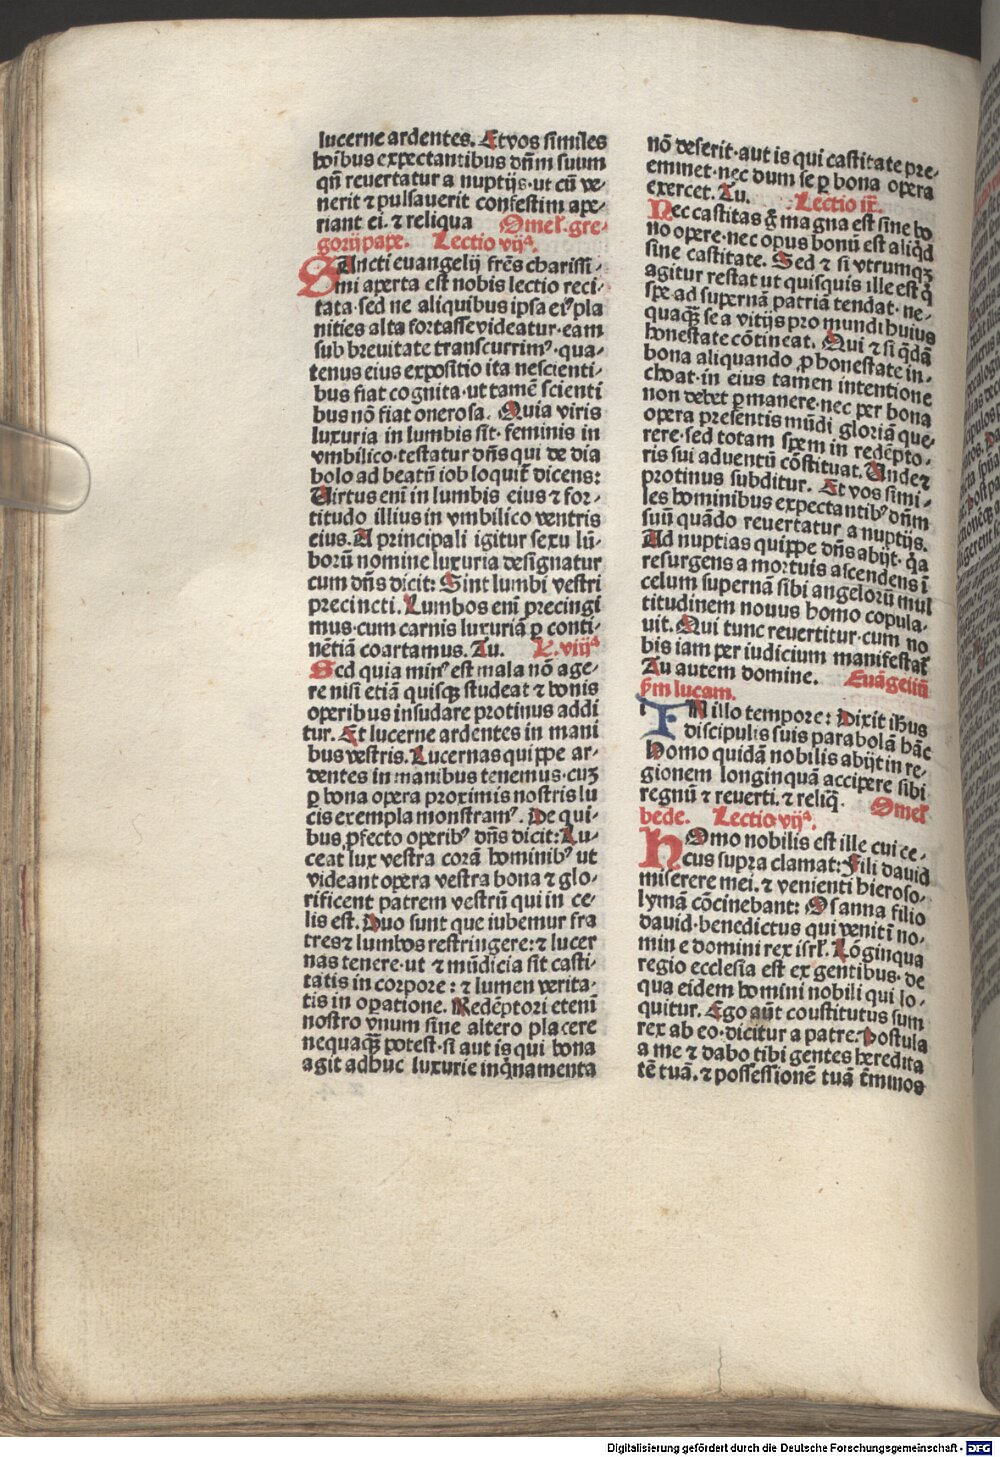 lucerne ardentes. Et vos similes
hoĩbus expectantibus dñm suum
qñ revertatur a nuptijs·ut cũ ve-
nerit ⁊ pulsauerit confestim ape-
riant ei. ⁊ reliqua Omeł. gre-
gorij pape. Lectio vijª.
SAncti euangelij fřes charissi-
mi aperta est nobis lectio reci-
tata·sed ne aliquibus ipsa eiꝰ pla
nities alta fortasse videatur·eam
sub breuitate transcurrimꝰ·qua-
tenus eius expositio ita nescienti-
bus fiat cognita·ut tamẽ scienti
bus nõ fiat onerosa. Quia viris
luxuria in lumbis sit·feminis in
vmbilico·testatur dñs qui de dia
bolo ad beatũ iob loquit̃ dicens:
Uirtus enĩ in lumbis eius ⁊ for-
titudo illius in vmbilico ventris
eius. A principali igitur sexu lũ-
borũ nomine luxuria designatur
cum dñs dicit: Sint lumbi vestri
precincti. Lumbos enĩ precingi
mus·cum carnis luxuriã ꝑ conti-
nẽtiã coartamus. Tu. L. viijª
Sed quia minꝰ est mala nõ age-
re nisi etiã quisqꝫ studeat ⁊ bonis
operibus insudare protinus addi
tur. Et lucerne ardentes in mani
bus vestris. Lucernas quippe ar-
dentes in manibus tenemus·cuꝫ
ꝑ bona opera proximis nostris lu
cis exempla monstramꝰ. De qui-
bus ꝓfecto operibꝰ dñs dicit: Lu-
ceat lux vestra corã hominibꝰ ut
videant opera vestra bona ⁊ glo-
rificent patrem vestrũ qui in ce-
lis est. Duo sunt que iubemur fra
tres ⁊ lumbos restringere: ⁊ lucer
nas tenere·ut ⁊ mũdicia sit casti-
tatis in corpore: ⁊ lumen verita-
tis in oꝑatione. Redẽptori etenĩ
nostro vnum sine altero placere
nequaqȝ potest·si aut is qui bona
agit adhuc luxurie inq̃namenta
nõ deserit·aut is qui castitate pre-
eminet·nec dum se ꝑ bona opera
exercet. Tu. Lectio ix̃.
Nec castitas g̃ magna est sine bo
no opere·nec opus bonũ est aliq̃d
sine castitate. Sed ⁊ si vtrumqꝫ
agitur restat ut quisquis ille est q̃
spe ad supernã patriã tendat·ne-
quaqȝ se a vitijs pro mundi huius
honestate cõtineat. Qui ⁊ si q̃dã
bona aliquando ꝓ honestate in-
choat·in eius tamen intentione
non debet ꝑmanere·nec per bona
opera presentis mũdi gloriã que-
rere·sed totam spem in redẽpto-
ris sui aduentũ cõstituat. Unde ⁊
protinus subditur. Et vos simi-
les hominibus expectantibꝰ dñm
suũ quãdo reuertatur a nuptijs.
Ad nuptias quippe dñs abijt·q̃a
resurgens a mortuis ascendens ĩ
celum supernã sibi angelorũ mul
titudinem nouus homo copula-
uit. Qui tunc reuertitur·cum no
bis iam per iudicium manifestat̃
Tu autem domine. Euãgeliũ
ẜm lucam.
i IN illo tempore: Dixit ihũs
discipulis suis parabolã hãc
Homo quidã nobilis abijt in re-
gionem longinquã accipere sibi
regnũ ⁊ reuerti. ⁊ reliq̃. Omeł
bede. Lectio vijª.
HOmo nobilis est ille cui ce-
cus supra clamat: Fili dauid
miserere mei. ⁊ venienti hieroso-
lymã cõcinebant: Osanna filio
dauid·benedictus qui venit ĩ no-
mine domini rex isrł. Lõginqua
regio ecclesia est ex gentibus·de
qua eidem homini nobili qui lo-
quitur. Ego aũt coustitutus sum
rex ab eo·dicitur a patre: Postula
a me ⁊ dabo tibi gentes heredita
tẽ tuã. ⁊ possessionẽ tuã t̃minos
Digitalisierung gefördert durch die Deutsche Forschungsgemeinschaft - DFG